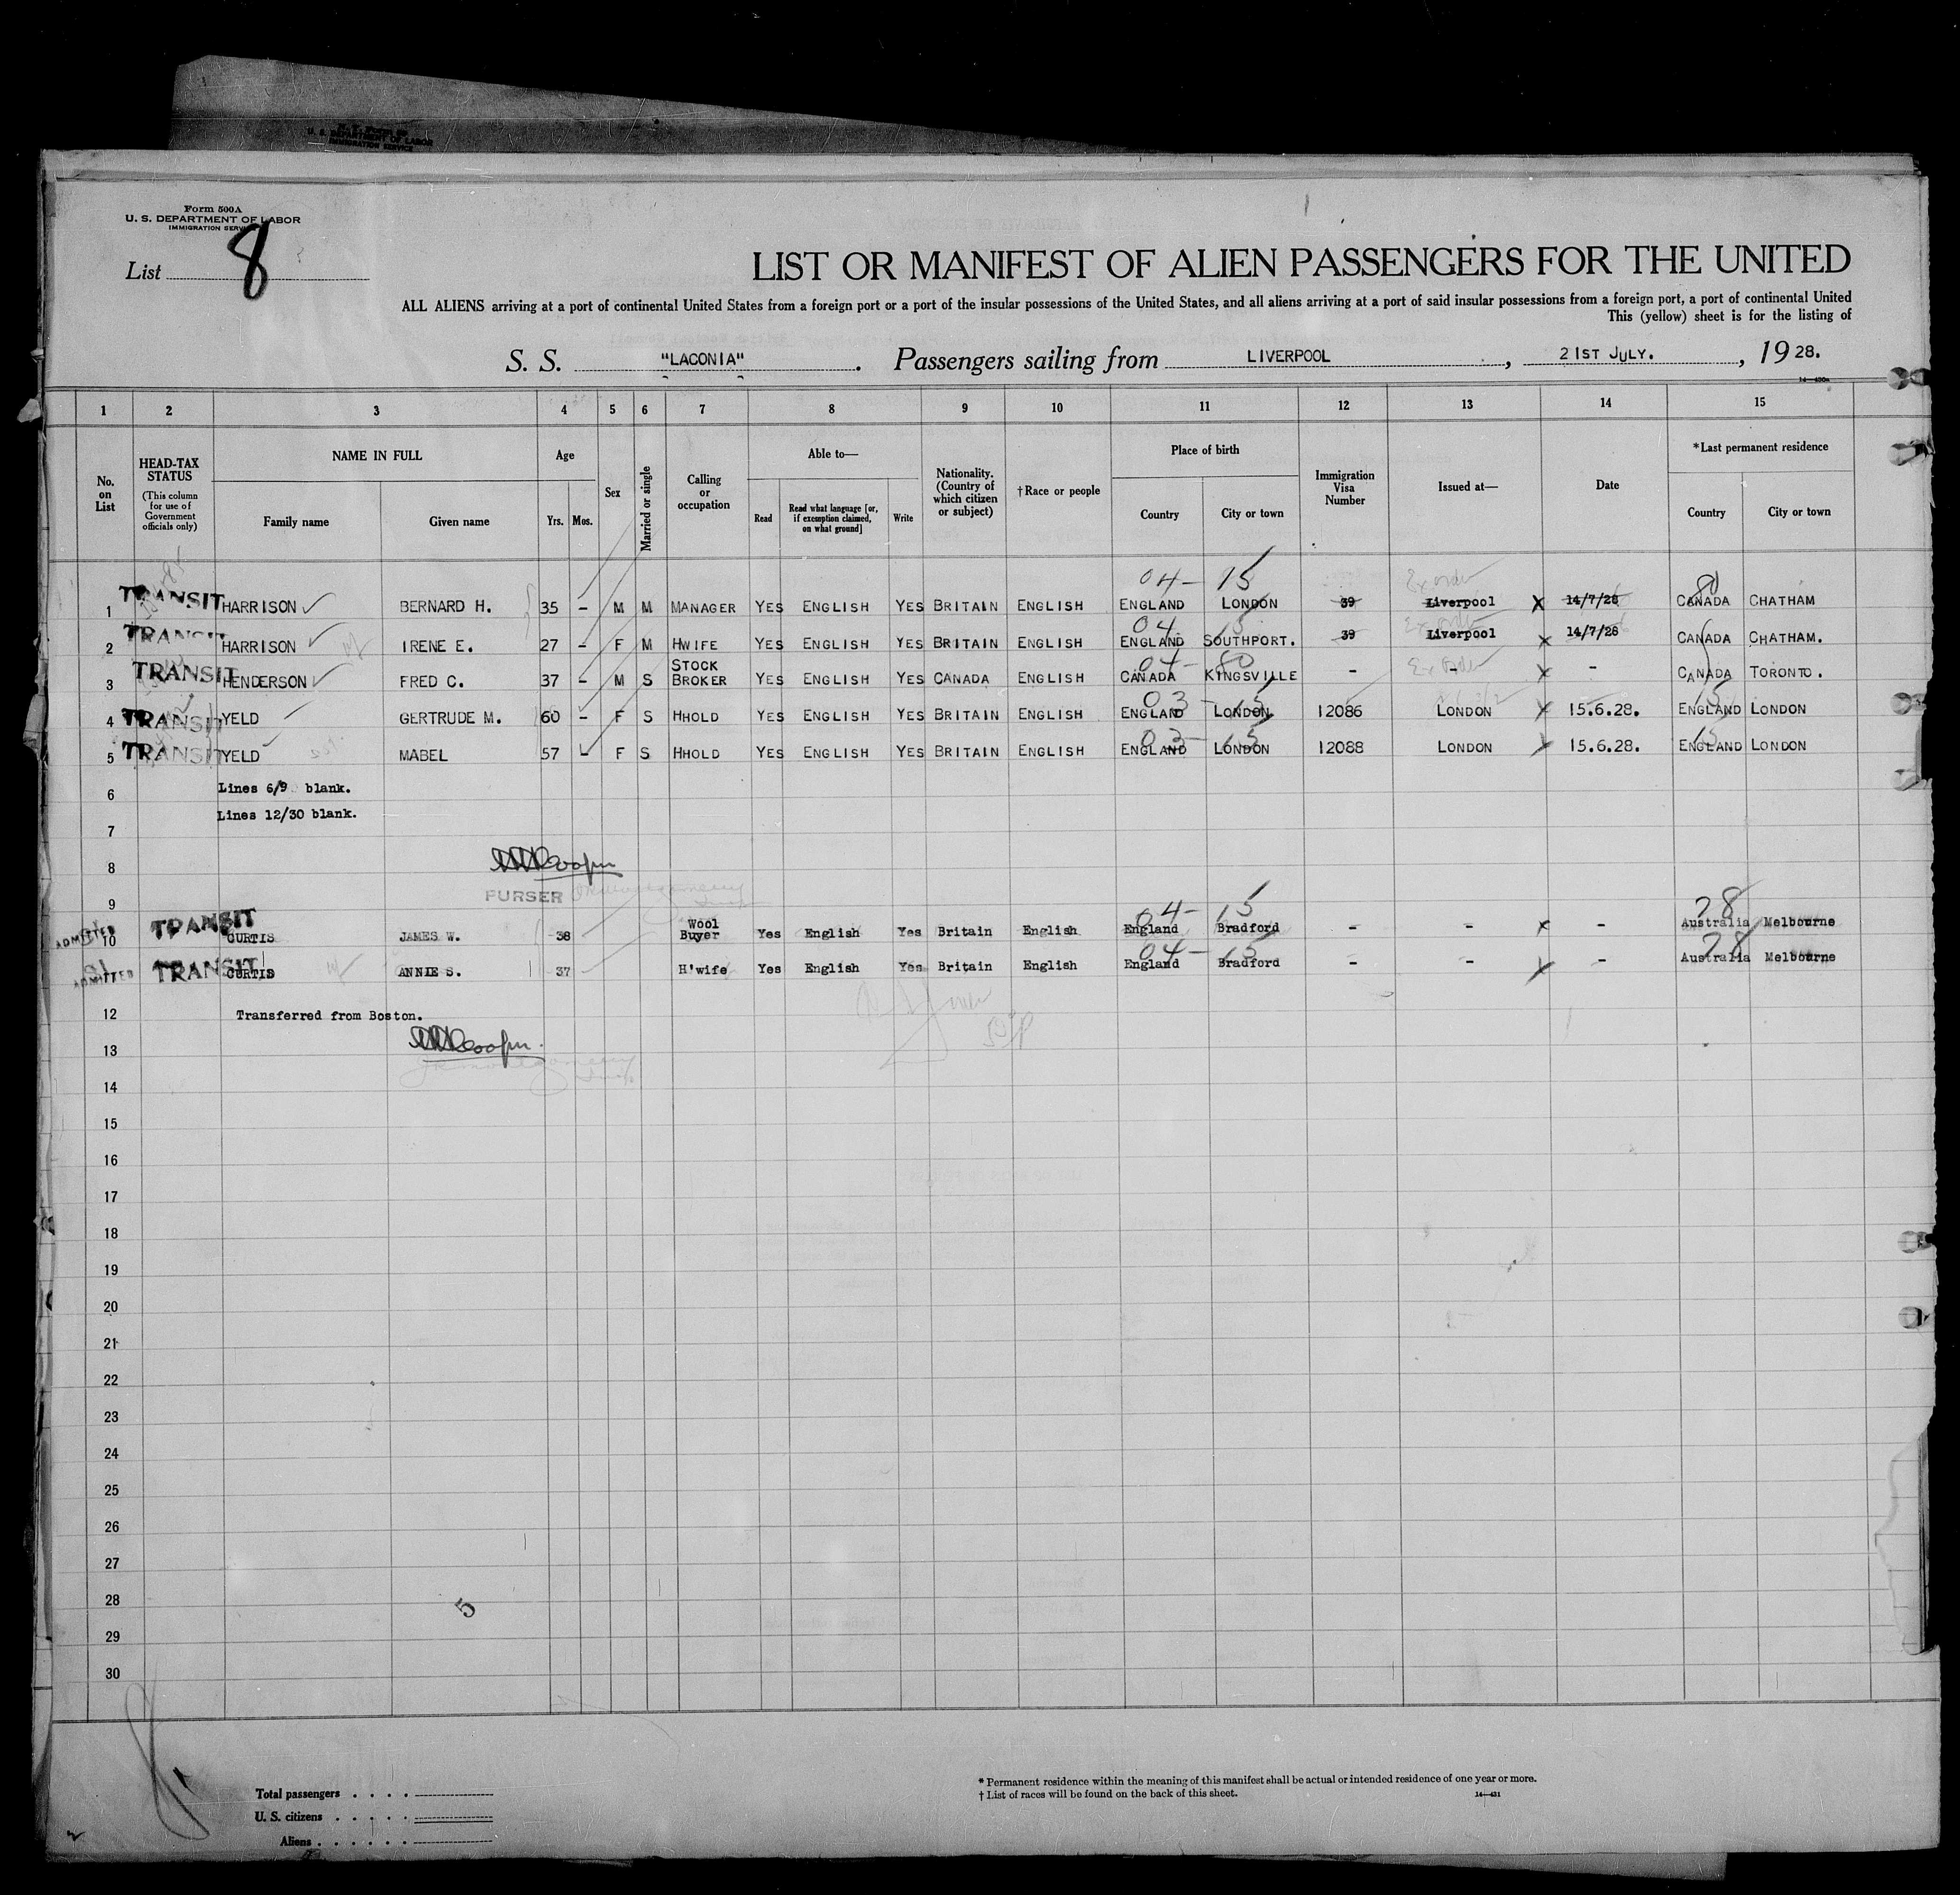 U. S. DEPARTMENT OF LABOR
IMMIGRATION SERVICE
Form 500A
U. S. DEPARTMENT OF LABOR
IMMIGRATION SERVICE
List 8
LIST OR MANIFEST OF ALIEN PASSENGERS FOR THE UNITED
ALL ALIENS arriving at a port of continental United States from a foreign port or a port of the insular possessions of the United States, and all aliens arriving at a port of said insular possessions from a foreign port, a port of continental United
This (yellow) sheet is for the listing of
S. S. "LACONIA". Passengers sailing from LIVERPOOL, 21ST JULY., 19 28.
1 2 3 4 5 6 7 8 9 10 11 12 13 14 15
No. on List
HEAD-TAX STATUS
(This column for use of Government officials only)
NAME IN FULL
Family name Given name
Age
Yrs. Mos.
Sex
Married or single
Calling or occupation
Able to—
Read
Read what language [or, if exemption claimed, on what ground]
Write
Nationality. (Country of which citizen or subject)
†Race or people
Place of birth
Country City or town
Immigration Visa Number
Issued at—
Date
*Last permanent residence
Country City or town
04- 15 80
1 TRANSIT HARRISON BERNARD H. 35 - M M MANAGER YES ENGLISH YES BRITAIN ENGLISH ENGLAND LONDON 39 Liverpool X 14/7/28 CANADA CHATHAM
04 15
2 TRANSIT HARRISON IRENE E. 27 - F M HWIFE YES ENGLISH YES BRITAIN ENGLISH ENGLAND SOUTHPORT. 39 Liverpool X 14/7/28 CANADA CHATHAM.
04- 80
3 TRANSIT HENDERSON FRED C. 37 - M S STOCK BROKER YES ENGLISH YES CANADA ENGLISH CANADA KINGSVILLE - - X - CANADA TORONTO.
03- 15 15
4 TRANSIT YELD GERTRUDE M. 60 - F S HHOLD YES ENGLISH YES BRITAIN ENGLISH ENGLAND LONDON 12086 LONDON X 15.6.28. ENGLAND LONDON
03- 15 15
5 TRANSIT YELD MABEL 57 - F S HHOLD YES ENGLISH YES BRITAIN ENGLISH ENGLAND LONDON 12088 LONDON X 15.6.28. ENGLAND LONDON
6 Lines 6/9 blank.
Lines 12/30 blank.
7
8
PURSER
9
04- 15 28
ADMITTED 10 TRANSIT CURTIS JAMES W. 38 Wool Buyer Yes English Yes Britain English England Bradford - - X - Australia Melbourne
04- 15 28
ADMITTED 11 TRANSIT CURTIS ANNIE S. 37 H'wife Yes English Yes Britain English England Bradford - - X - Australia Melbourne
12 Transferred from Boston.
13
14
15
16
17
18
19
20
21
22
23
24
25
26
27
28
5
29
30
Total passengers . . . .
U. S. citizens . . . . .
Aliens . . . . . .
* Permanent residence within the meaning of this manifest shall be actual or intended residence of one year or more.
† List of races will be found on the back of this sheet.